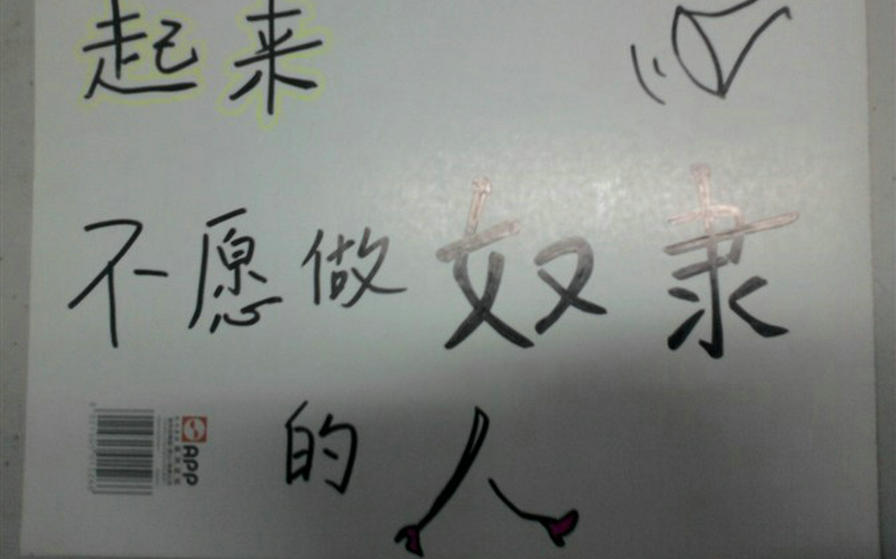 起来
不愿做奴隶
的人
APP